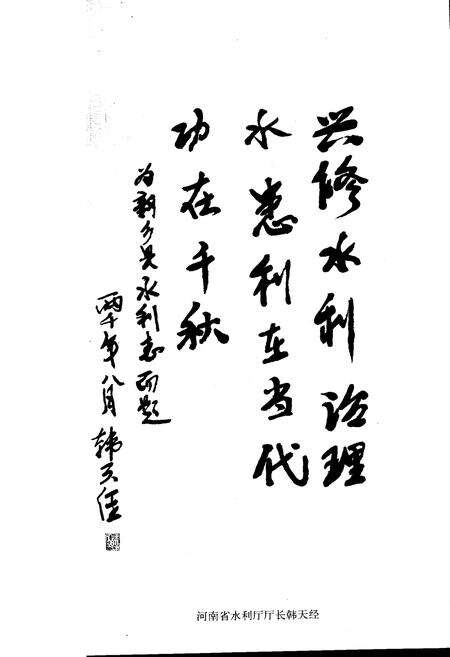 兴修水利治理
水患利在当代
功在千秋
为新乡县水利志而题
年八月 韩天经
河南省水利厅厅长韩天经